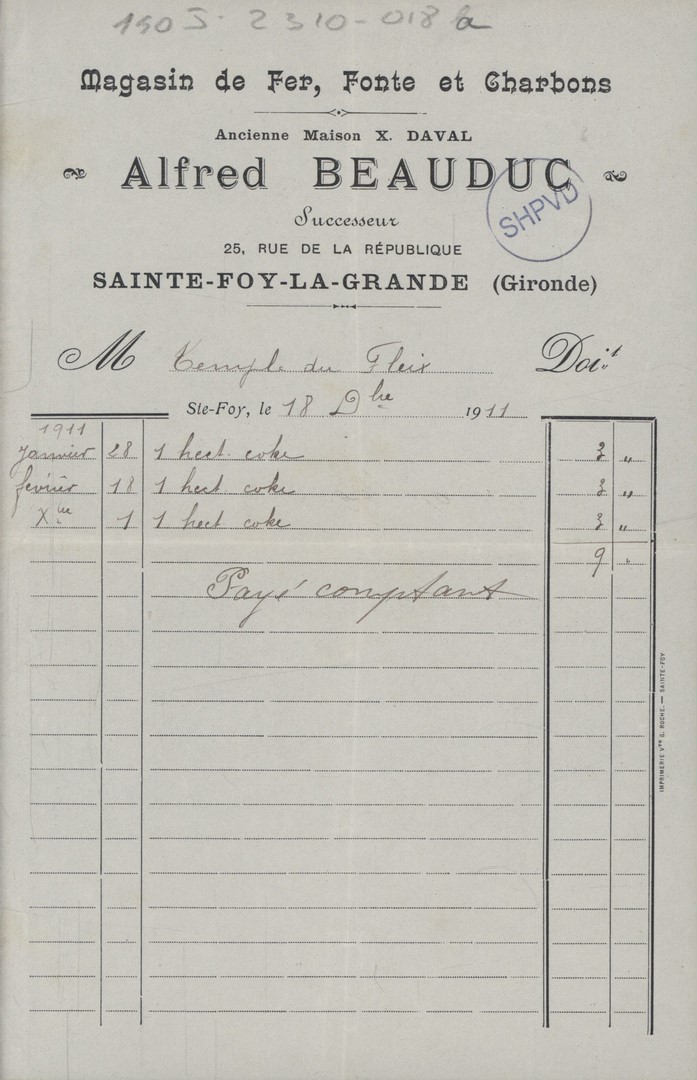 190 J - 2310 - 018 b
Magasin de Fer, Fonte et Charbons
Ancienne Maison X. DAVAL
Alfred BEAUDUC
SHPVD
Successeur
25, RUE DE LA RÉPUBLIQUE
SAINTE-FOY-LA-GRANDE (Gironde)
M Temple du Fleix Doit
Ste-Foy, le 18 Dbre 1911
1911
Janvier 28 1 hect. coke 3 "
février 18 1 hect coke 3 "
Xbre 1 1 hect coke 3 "
9 "
Payé comptant
IMPRIMERIE Vve G. ROCHE. — SAINTE-FOY